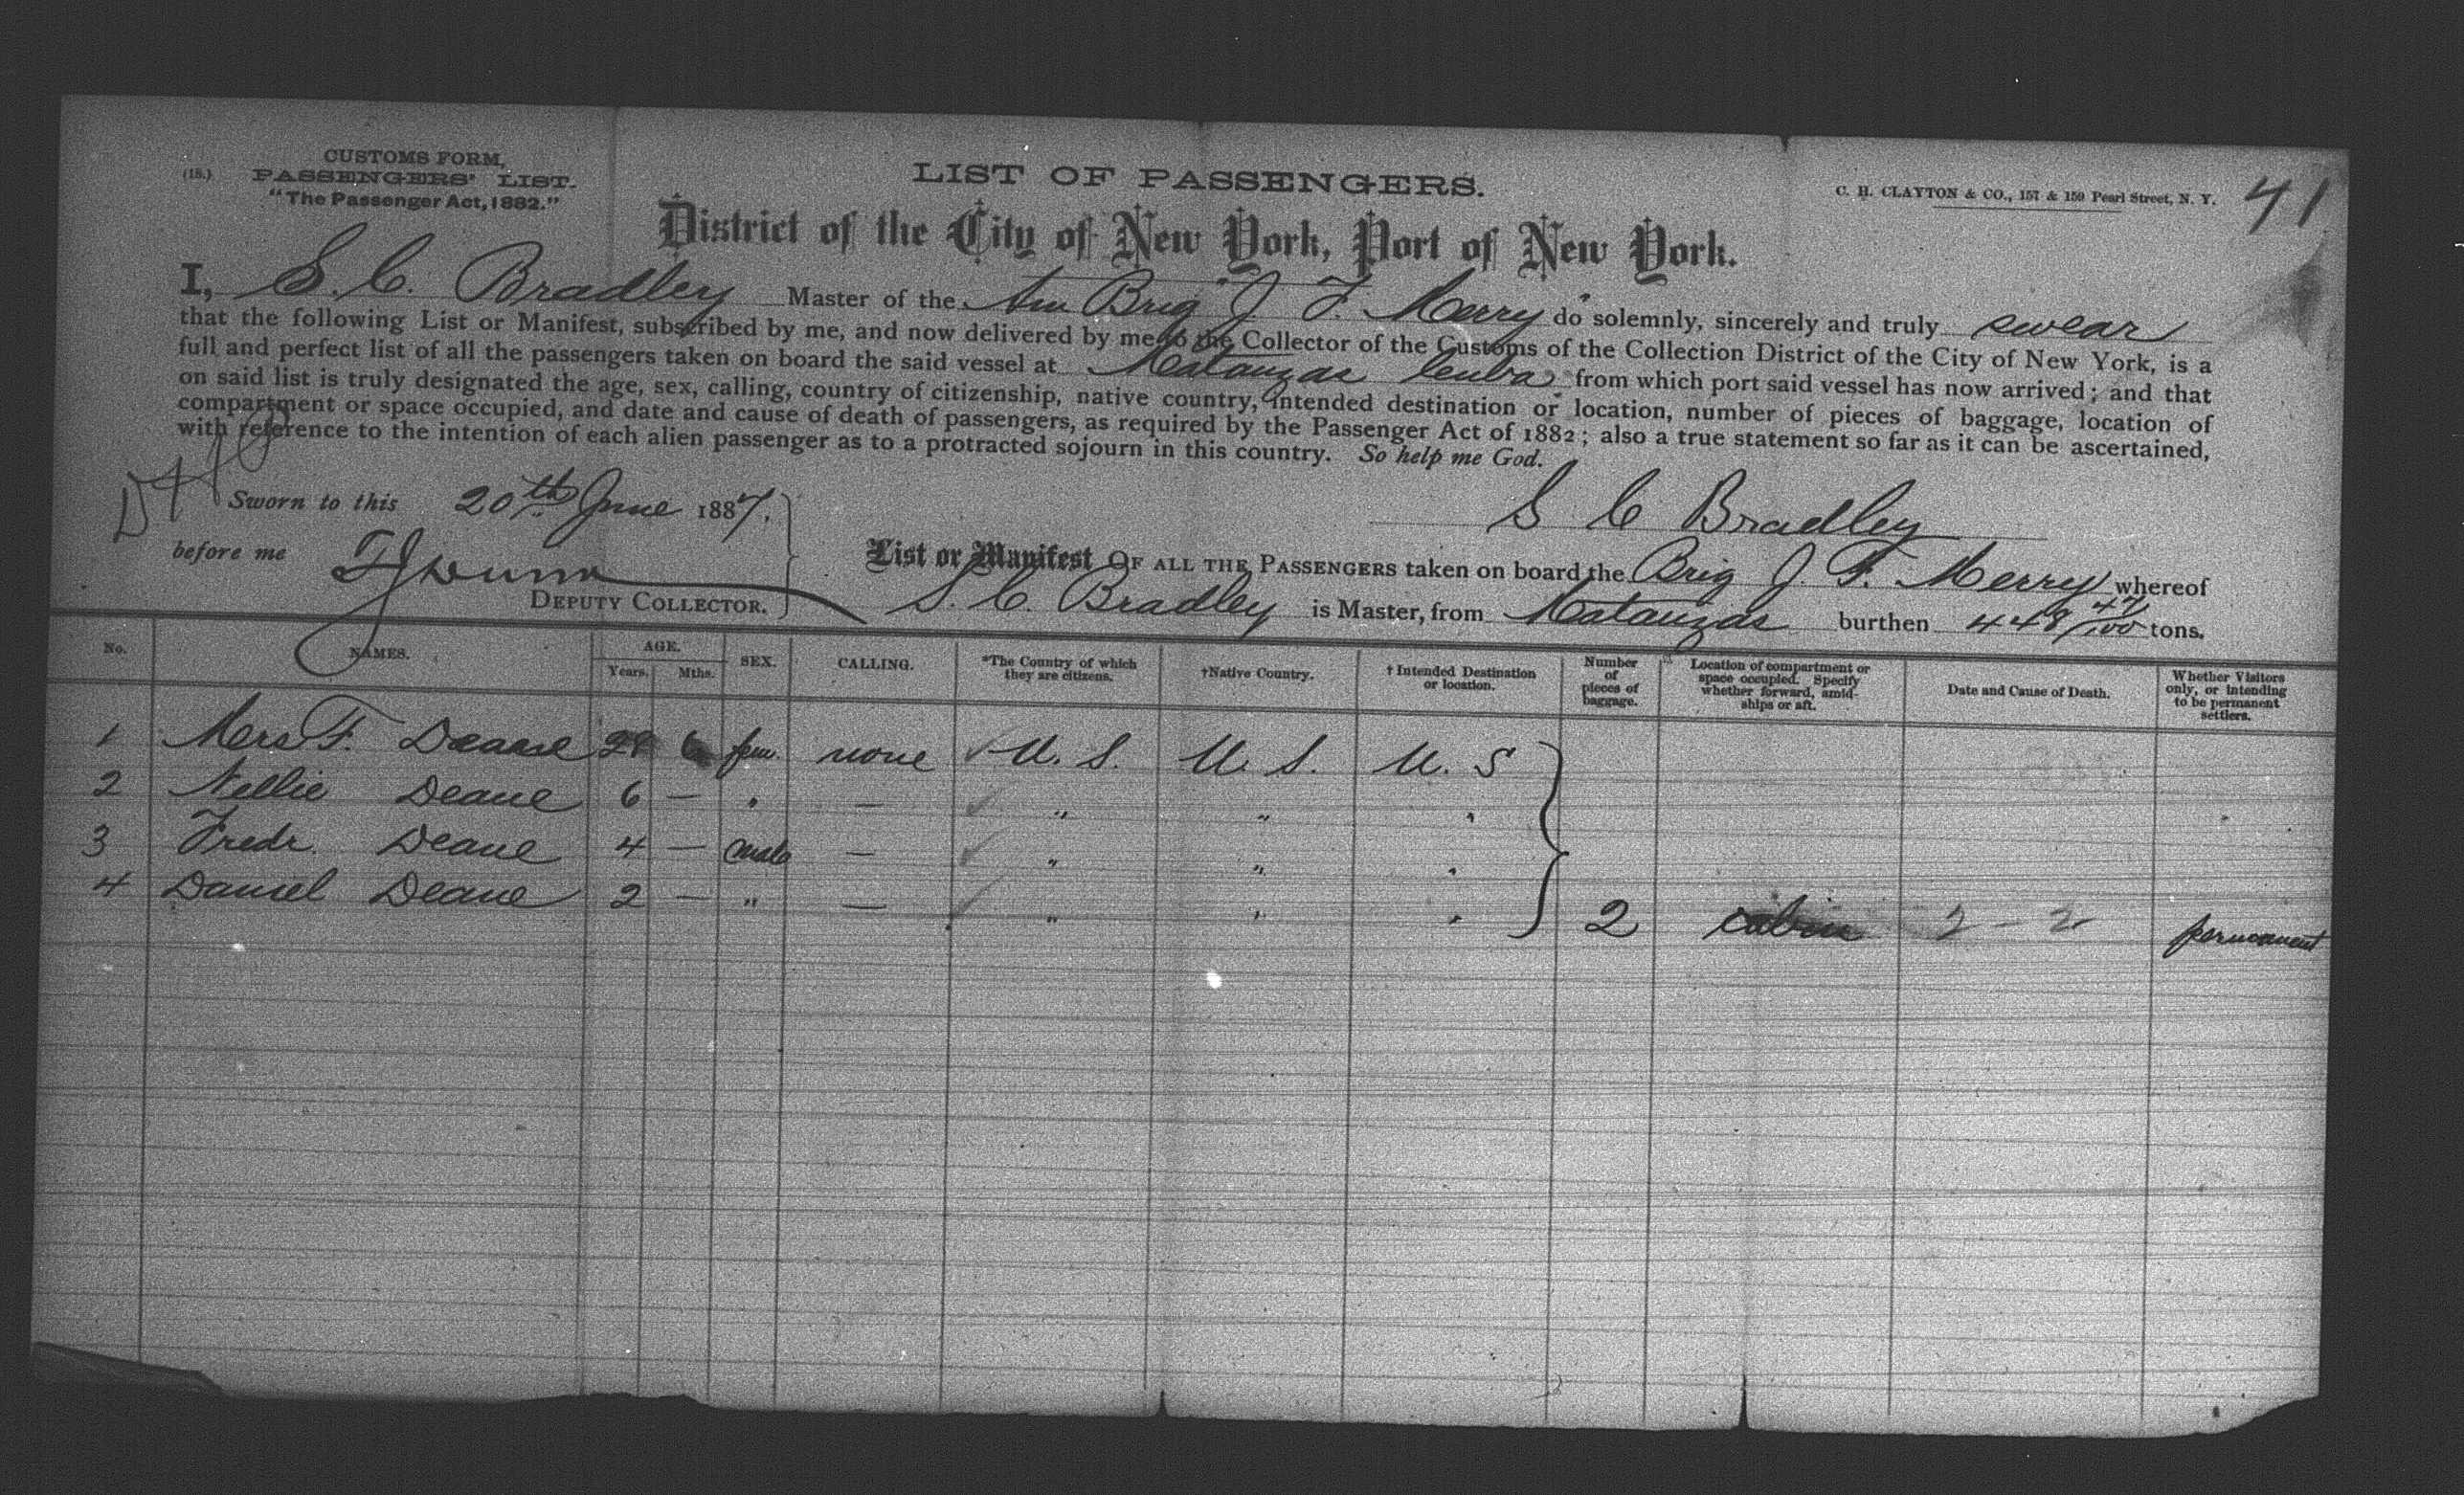 CUSTOMS FORM,
(18.) PASSENGERS' LIST.
"The Passenger Act, 1882."
LIST OF PASSENGERS.
C. H. CLAYTON & CO., 157 & 159 Pearl Street, N. Y.
41
District of the City of New York, Port of New York.
I, S. C. Bradley Master of the Am Brig "J. F. Merry" do solemnly, sincerely and truly swear
that the following List or Manifest, subscribed by me, and now delivered by me to the Collector of the Customs of the Collection District of the City of New York, is a
full and perfect list of all the passengers taken on board the said vessel at Matanzas Cuba from which port said vessel has now arrived; and that
on said list is truly designated the age, sex, calling, country of citizenship, native country, intended destination or location, number of pieces of baggage, location of
compartment or space occupied, and date and cause of death of passengers, as required by the Passenger Act of 1882; also a true statement so far as it can be ascertained,
with reference to the intention of each alien passenger as to a protracted sojourn in this country. So help me God.
Sworn to this 20th June 1887.
S C Bradley
before me
DEPUTY COLLECTOR.
List or Manifest OF ALL THE PASSENGERS taken on board the Brig J. F. Merry whereof
S. C. Bradley is Master, from Matanzas burthen 448 47/100 tons.
No. NAMES. AGE. Years. Mths. SEX. CALLING. *The Country of which they are citizens. †Native Country. †Intended Destination or location. Number of pieces of baggage. Location of compartment or space occupied. Specify whether forward, amidships or aft. Date and Cause of Death. Whether Visitors only, or intending to be permanent settlers.
1 Mers F. Deane 29 6 fem. none U. S. U. S. U. S
2 Nellie Deane 6 — " — " " "
3 Fredr. Deane 4 — male — " " "
4 Daniel Deane 2 — " — " " " 2 cabin 2 - 2 permanent